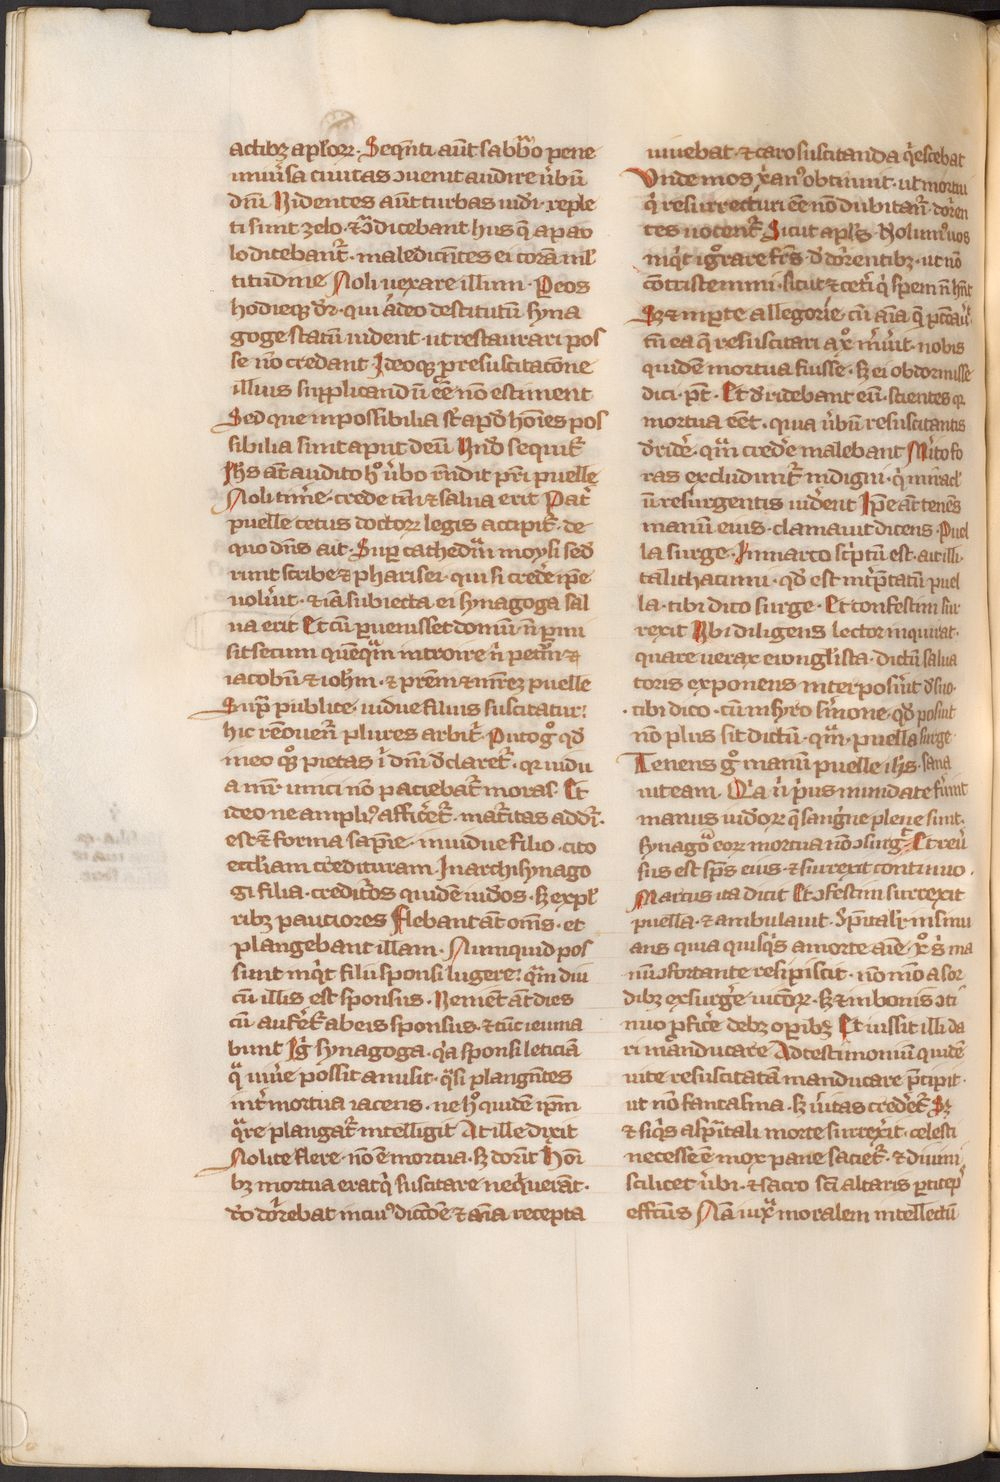 actibꝫ aploꝝ. Seqn̄ti aūt sabb̄o pene
uniu̓sa ciuitas ↄuenit audire u̓bū
dn̄i Uidentes aūt turbas iud̓i. reple
ti sunt zelo. ⁊ ꝯ̄dicebant hiis q̄ a pau
lo diceban̄t. maledicn̄tes ei coram ml̓
titudine Noli uexare illum. Deos
hodieqꝫ d̓r. qui adeo destitutū syna
goge statū uident. ut restaurari pos
se nō credant Ideoqꝫ ꝓ resuscitatōne
illius supplicandū eē nō estiment
Sed que inpossibilia st̄ apd̓ hoīes pos
sibilia sunt aput deū Und̓ sequit̓
Ihs aūt audito hͦ u̓bo rn̄dit pr̄i puelle
Noli tim̓e. crede tm̄ ⁊ salua erit Pat̓
puelle cetus doctoꝝ legis accipit̓. de
quo dn̄s ait. Sup̄ cathedrā moysi sed̓
runt scribe ⁊ pharisei. qui si cred̓e ip̄e
uolu̓it. ⁊ iā subiecta ei synagoga sal
ua erit Et cū puenisset domū. n̄ pmi
sit secum quēqͣm introire n̄ petrū ⁊
iacobū ⁊ iohm̄. ⁊ prēm ⁊ mr̄eꝫ puelle
Sup̄ publice. uidue filius suscitatur:
hic rēouen̓t plures arbit̓. Puto gͦ qd̓
in eo qͦꝫ pietas ī dn̄i d̓claret̓. qꝛ uidu
a mr̄ unici nō paciebat̓ moras. Et
ideo ne ampli⁹ affic̓et̓. mat̓itas addr̓.
est ⁊ forma sapīe. in uidue filio. cito
ecclīam credituram. In archisynago
gi filia. credit̓os quidē iud̓os. sꝫ ex pl̓
ribꝫ pauciores Flebant aūt om̄s. et
plangebant illam. Numquid pos
sunt inqͥt filii sponsi lugere: qͣmdiu
cū illis est sponsus. Uenient aūt dies
cū aufet̓ ab eis sponsus. ⁊ tūc ieiuna
bunt Ig̓ synagoga. qͣa sponsi leticiā
qͣ uiu̓e possit amisit. qͣsi plangn̄tes
int̓ mortua iacens. ne hͦ quidē ip̄m
qͣre plangat̓ intelligit At ille dixit
Nolite flere. nō ē mortua. sꝫ dormit Hoī
bꝫ mortua erat qͥ suscitare neqͥuerāt.
d̓o dor̓ebat in cui⁹ dicc̄oē ⁊ aīa recepta
uiuebat. ⁊ caro suscitanda qͥescebat
Unde mos xp̄ian⁹ obtinuit. ut mortui
qͥ resurrecturi eē nō dubitan̓t. dor̓en
tes uocent̓ Sicut apl̓s. Nolum⁹ uos
inqͥt ignͦrare fr̄s. d̓ dor̓entibꝫ. ut nō
cōtristemini. sicut ⁊ cet̓i qͥ spem n̄ hn̄t
Sꝫ ⁊ in parte allegorie. cū aīa q̄ pccau̓
tū ea q̄ resuscitari a xͦ m̓uit. nobis
quidē mortua fuisse. sꝫ ei obdormisse
dici pt̄. Et d̓ridebant eū. scientes qꝛ
mortua eēt. quia u̓bū resuscitantis
d̓rid̓e. qͣm cred̓e malebant M̓ito fo
ras excludunt̓ indigni. qͥ miracl̓
ū resurgentis uid̓ent Ip̄e aūt tenēs
manū eius. clamauit dicens. Puel
la surge. In marco sc̓ptū est. ait illi
talithacumi. qd̓ est int̓p̄tatū puel
la. tibi dico surge. Et confestim sur
rexit Ubi diligens lector inquirat.
quare uerax euuangl̓ista. dictū salua
toris exponens interposu̓it d̓suo.
tibi dico. cum in syro s̓mone. qd̓ posuit
nō plus sit dictū. qͣm. puella surge.
Tenens gͦ manū puelle ihs. sana
uit eam. Qͥa n̓ p̓us mundate fu̓int
manus iud̓oꝝ q̄ sangͥne plene sunt.
synagoͣ eoꝝ mortua nō ↄsurg̓ Et reu̓
sus est sp̄s eius. ⁊ surrexit continuo.
Marcus ita dicit Et ↄfestim surrexit
puella. ⁊ ambulauit. Sp̄italit̓. insinu
ans quia quisqͥs a morte aīe. xͦ s̓ ma
nū ↄfortante resipiscit. nō mō a sor
dibꝫ exsurg̓e uicioꝝ. sꝫ ⁊ in bonis ↄti
nuo ꝓfic̓e debꝫ opibꝫ Et iussit illi da
ri manducare Ad testimoniū quidē
uite resuscitatā manducare p̄cipit.
ut nō fantasma. sꝫ u̓itas credet̓ Sꝫ
⁊ siqͥs a sp̄itali morte surrex̓it. celesti
necesse ē mox pane sacie̓t. ⁊ diuini
scilicet u̓bi. ⁊ sacro sc̄i altaris ꝑticeps
effectus Nā iuxͣ moralem intellectū